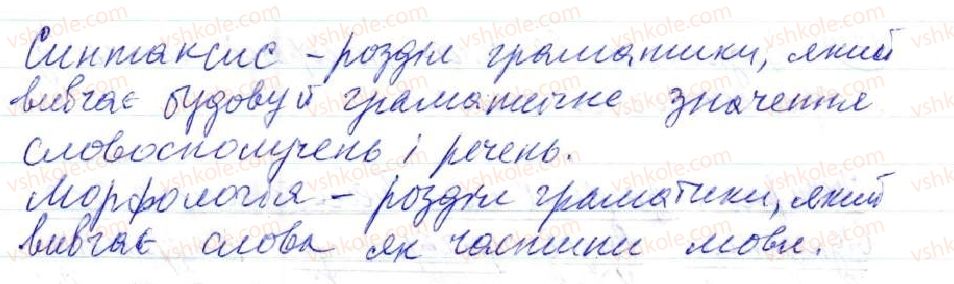 Синтаксис – розділ граматики, який
вивчає будову й граматичне значення
словосполучень і речень.
Морфологія – розділ граматики, який
вивчає слова як частини мови.